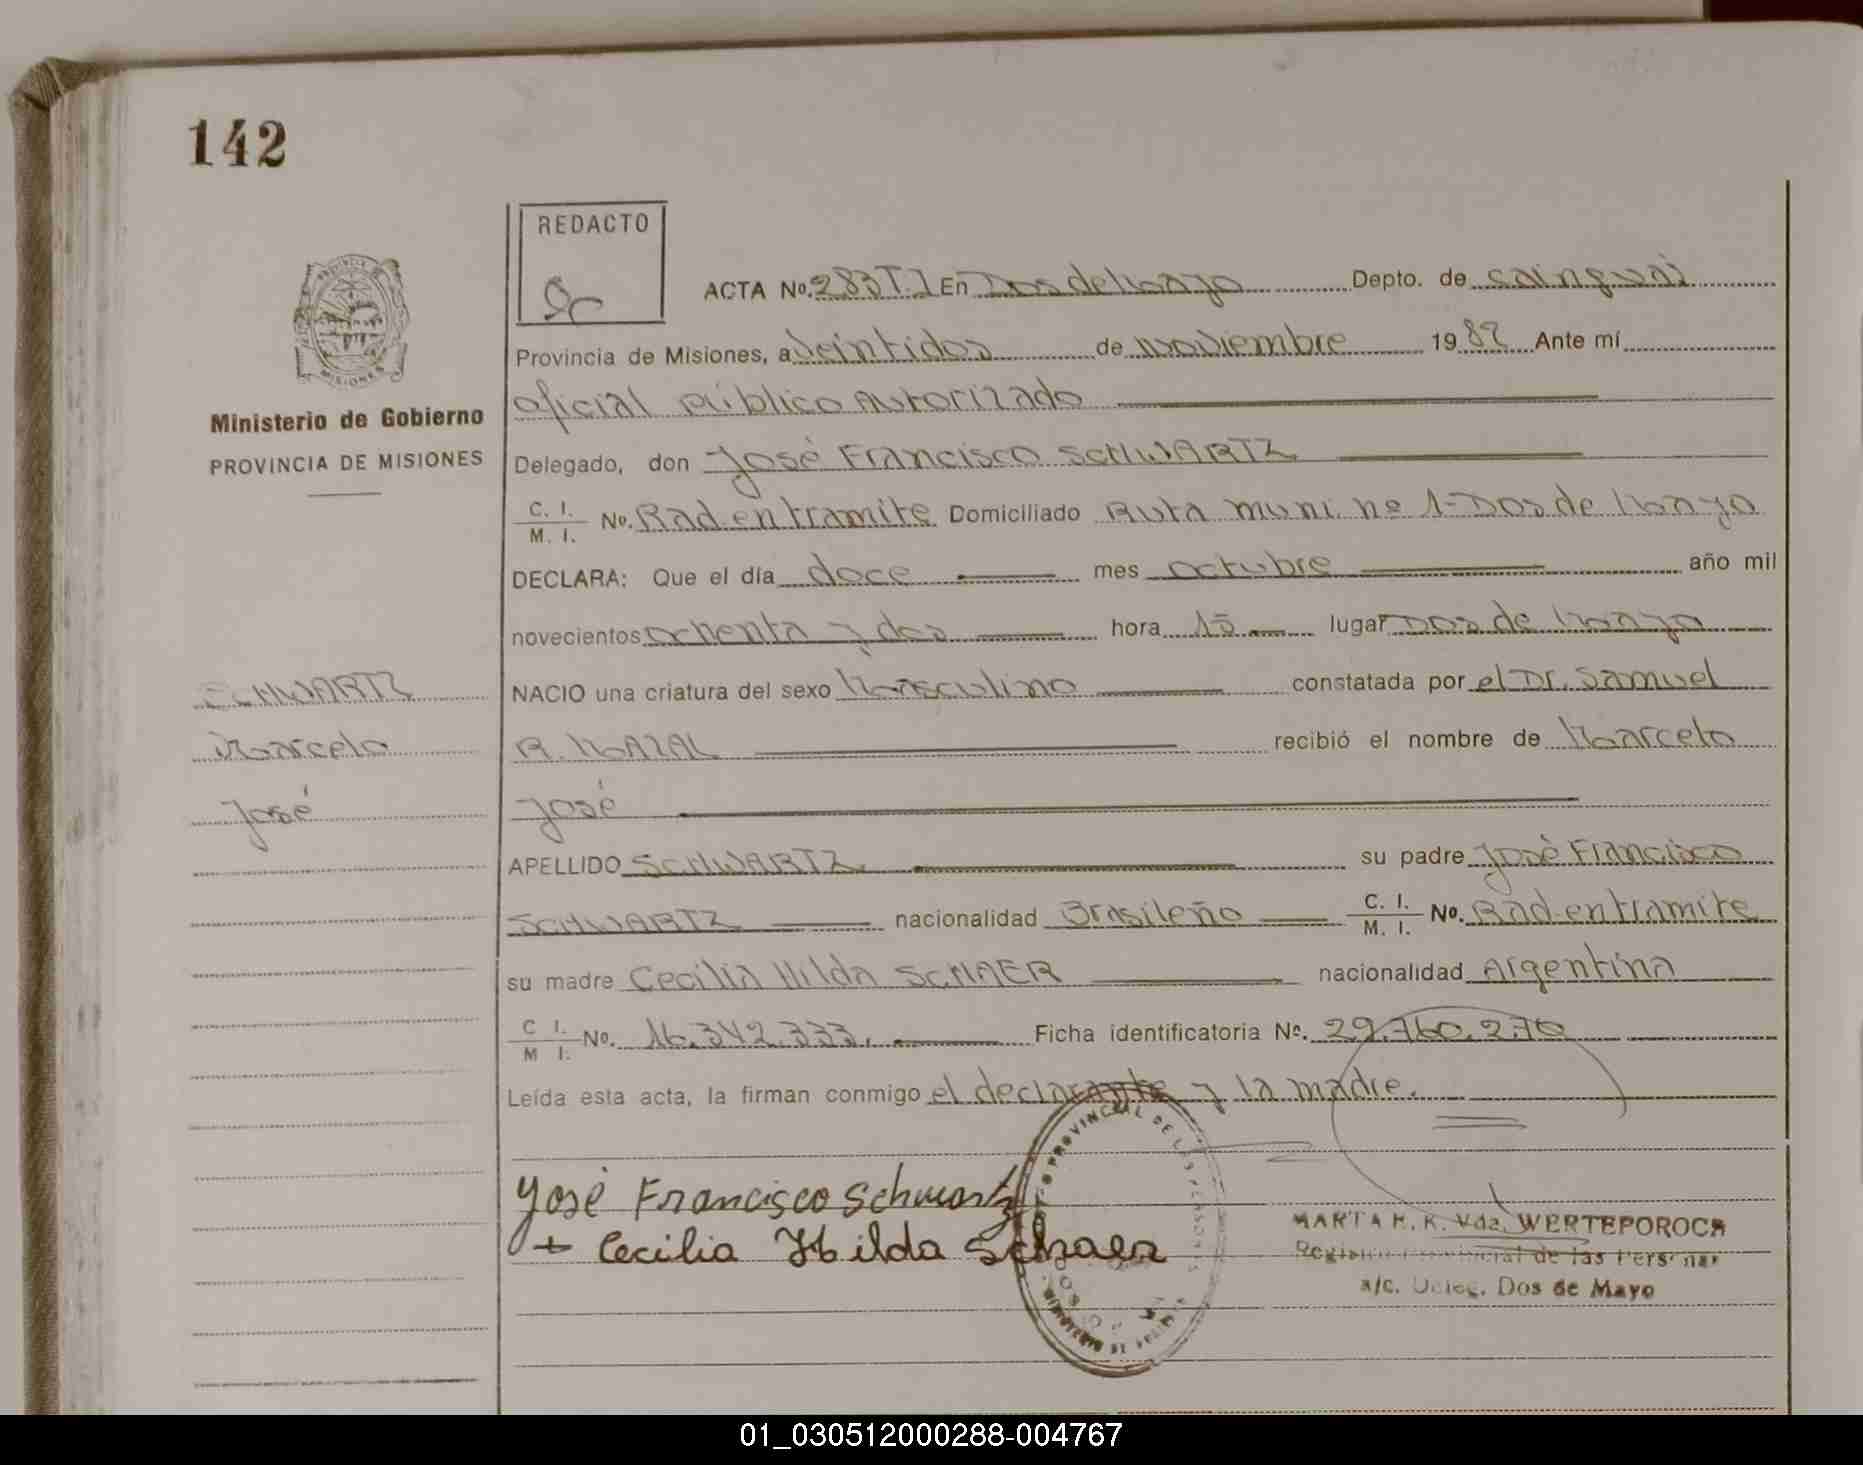 142
REDACTO
ACTA No. 283 T.I En Dos de Mayo Depto. de cainguas
Provincia de Misiones, a Veintidos de noviembre 1982 Ante mí
oficial público autorizado
Ministerio de Gobierno
PROVINCIA DE MISIONES
Delegado, don José Francisco SCHWARTZ
C. I.
M. I. No. Rad en tramite Domiciliado Ruta muni. nº 1-Dos de Mayo
DECLARA: Que el día doce mes octubre año mil
novecientos ochenta y dos hora 15 lugar Dos de Mayo
SCHWARTZ
NACIO una criatura del sexo Masculino constatada por el Dr. Samuel
Marcelo
R. MAZAL recibió el nombre de Marcelo
José
José
APELLIDO SCHWARTZ su padre José Francisco
SCHWARTZ nacionalidad Brasileño C. I.
M. I. No. Rad-en tramite
su madre Cecilia Hilda SCHAER nacionalidad Argentina
C I.
M I. No. 16.342.333. Ficha identificatoria No. 29.760.270
Leída esta acta, la firman conmigo el declarante y la madre.
José Francisco Schwartz
+ Cecilia Hilda Schaer
PROVINCIAL DE LAS PERSONAS
MARTA H. K. Vda. WERTEPOROCH
Registro Provincial de las Personas
a/c. Deleg. Dos de Mayo
01_030512000288-004767